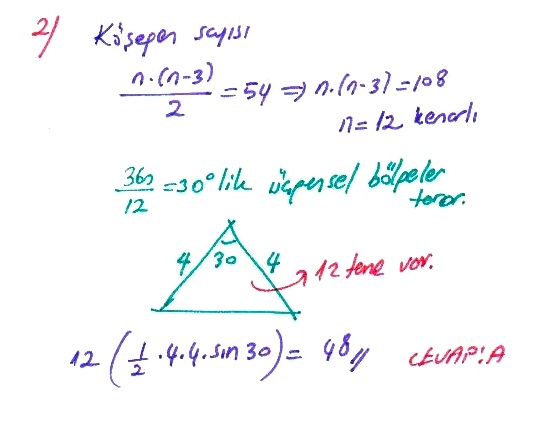 2) Köşegen sayısı
n.(n-3)/2 = 54 ⇒ n.(n-3) = 108
n = 12 kenarlı
360/12 = 30° lik üçgensel bölgeler
tarar.
4 30 4
12 tane var.
12 (1/2 . 4.4. sin 30) = 48 //
CEVAP: A